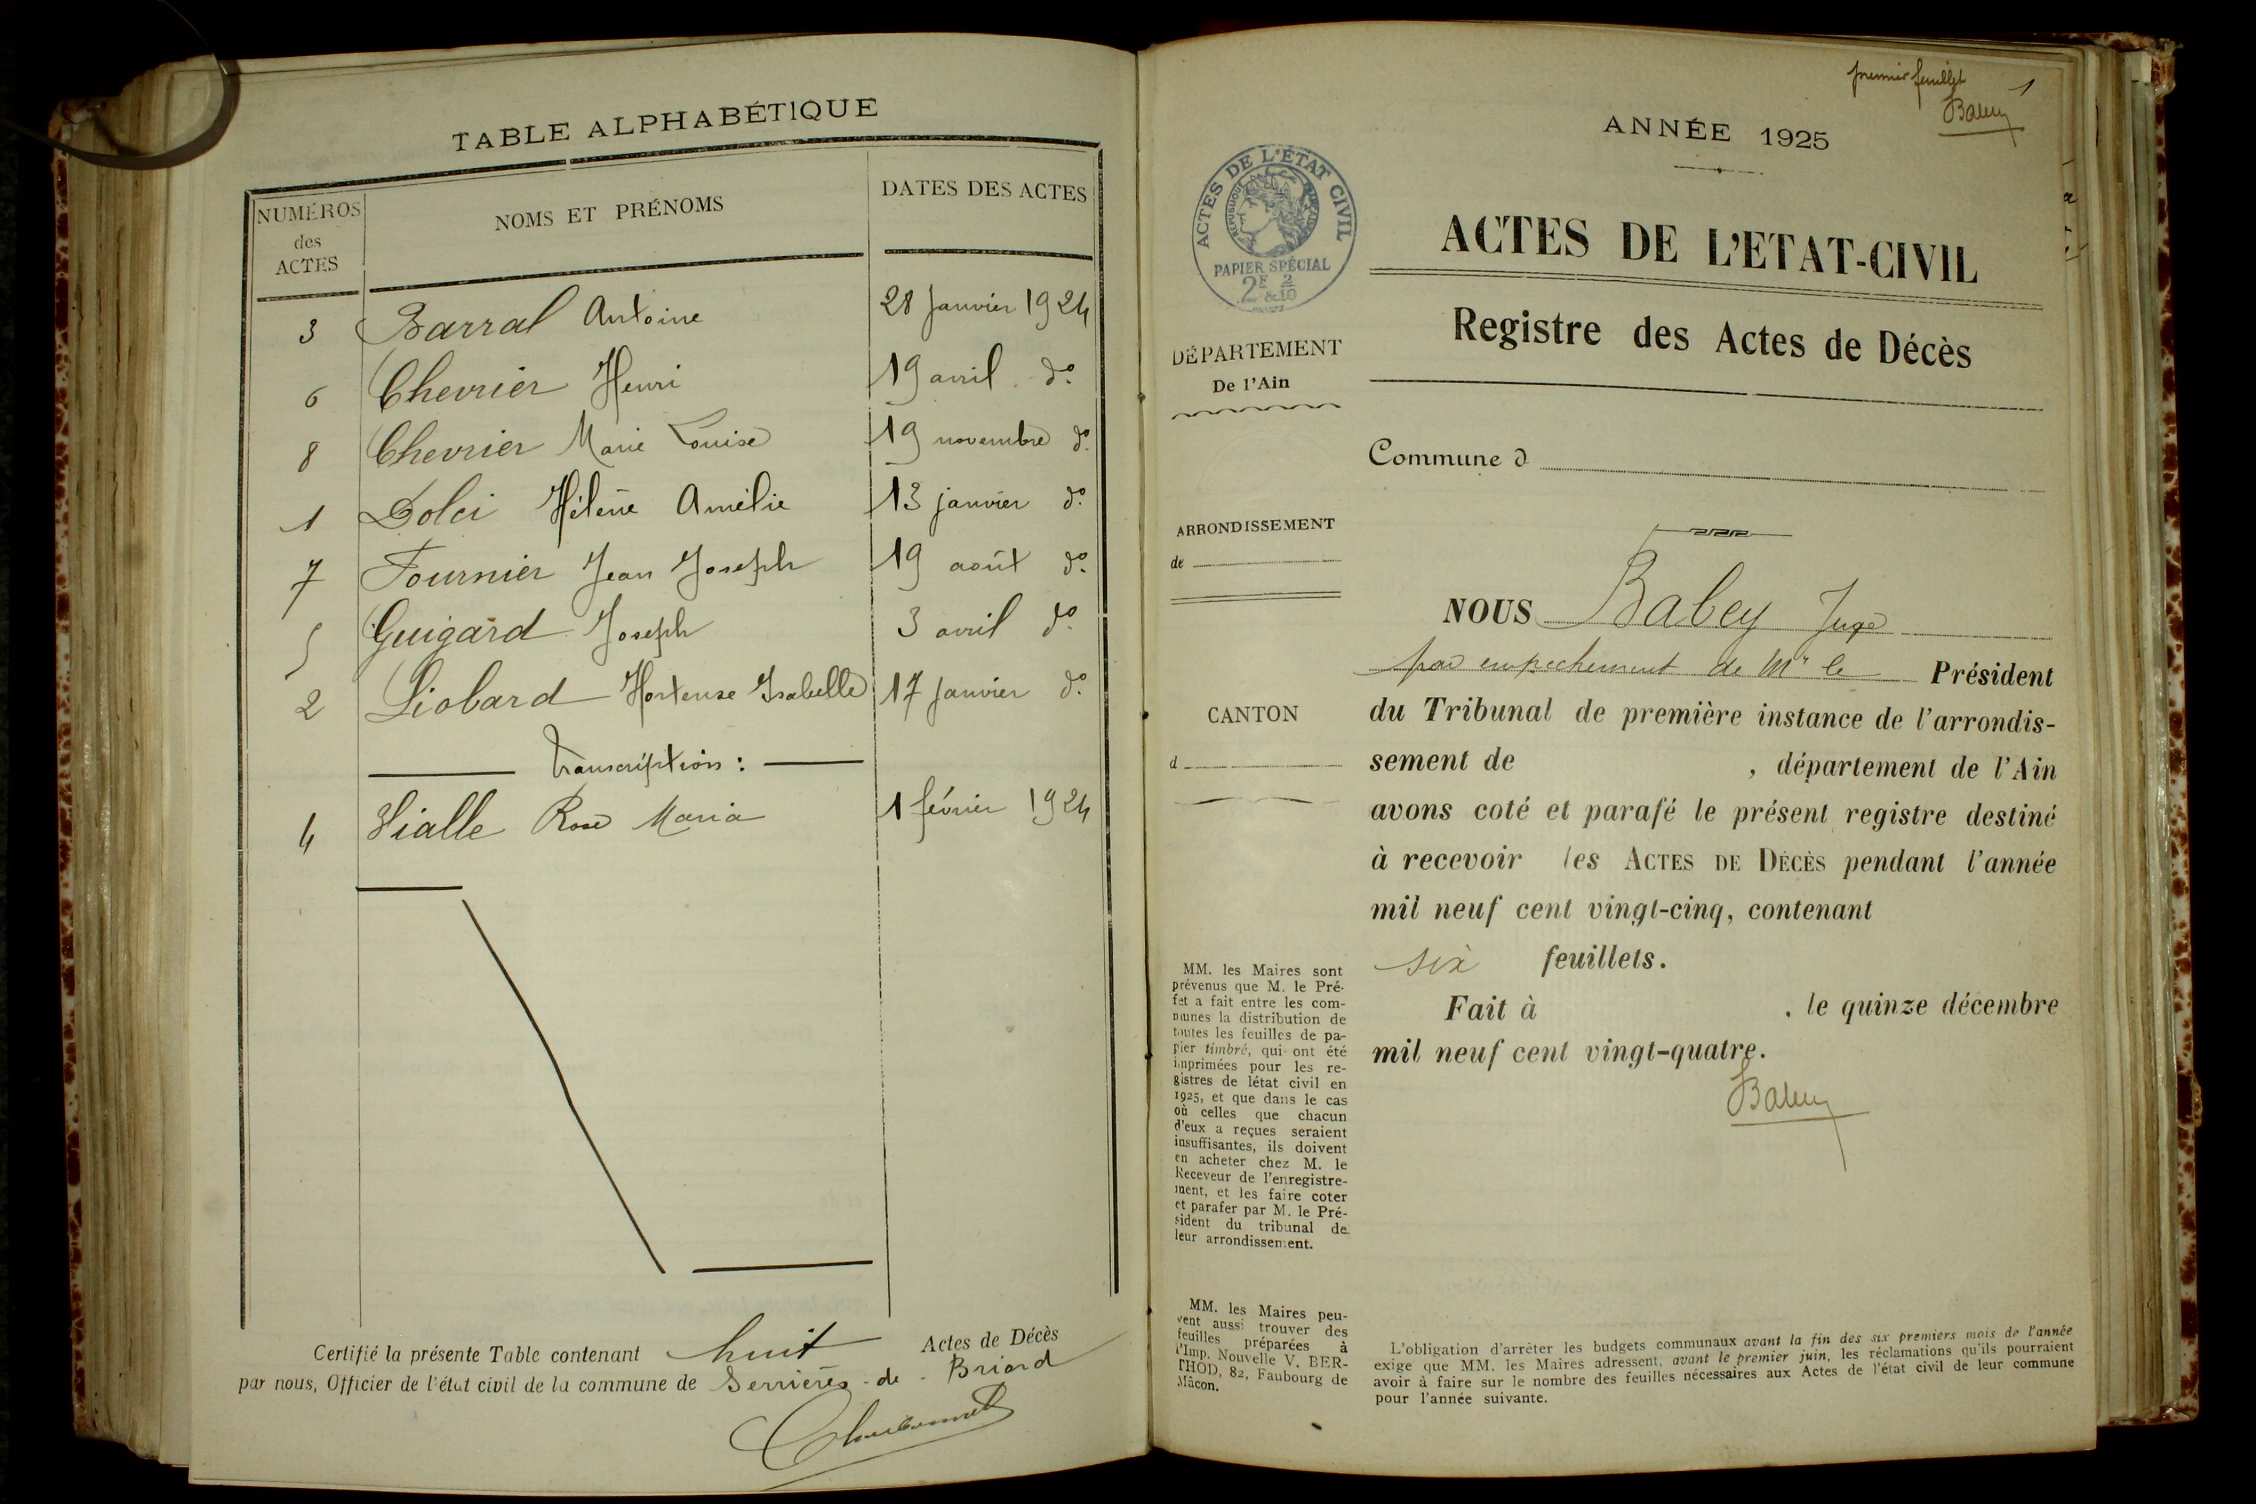 TABLE ALPHABÉTIQUE
NUMÉROS
des
ACTES
NOMS ET PRÉNOMS
DATES DES ACTES
3 Barral Antoine 28 janvier 1924
6 Chevrier Henri 19 avril do
8 Chevrier Marie Louise 19 novembre do
1 Dolci Hélène Amélie 13 janvier do
7 Fournier Jean Joseph 19 août do
5 Guigard Joseph 3 avril do
2 Liobard Hortense Isabelle 17 janvier do
Transcription :
4 Vialle Rose Maria 1 février 1924
Certifié la présente Table contenant huit Actes de Décès
par nous, Officier de l'état civil de la commune de Serrières-de-Briord
premier feuillet 1
Babey
ANNÉE 1925
ACTES DE L'ÉTAT CIVIL
RÉPUBLIQUE FRANÇAISE
PAPIER SPÉCIAL
2F & 2/10
ACTES DE L'ETAT-CIVIL
Registre des Actes de Décès
DÉPARTEMENT
De l'Ain
Commune d
ARRONDISSEMENT
de
CANTON
d
NOUS Babey Juge
par empêchement de Mr le Président
du Tribunal de première instance de l'arrondis-
sement de , département de l'Ain
avons coté et parafé le présent registre destiné
à recevoir les ACTES DE DÉCÈS pendant l'année
mil neuf cent vingt-cinq, contenant
six feuillets.
Fait à , le quinze décembre
mil neuf cent vingt-quatre.
Babey
MM. les Maires sont
prévenus que M. le Pré-
fet a fait entre les com-
munes la distribution de
toutes les feuilles de pa-
pier timbré, qui ont été
imprimées pour les re-
gistres de létat civil en
1925, et que dans le cas
où celles que chacun
d'eux a reçues seraient
insuffisantes, ils doivent
en acheter chez M. le
Receveur de l'enregistre-
ment, et les faire coter
et parafer par M. le Pré-
sident du tribunal de
leur arrondissement.
MM. les Maires peu-
vent aussi trouver des
feuilles préparées à
l'Imp. Nouvelle V. BER-
THOD, 82, Faubourg de
Mâcon.
L'obligation d'arrêter les budgets communaux avant la fin des six premiers mois de l'année
exige que MM. les Maires adressent, avant le premier juin, les réclamations qu'ils pourraient
avoir à faire sur le nombre des feuilles nécessaires aux Actes de l'état civil de leur commune
pour l'année suivante.